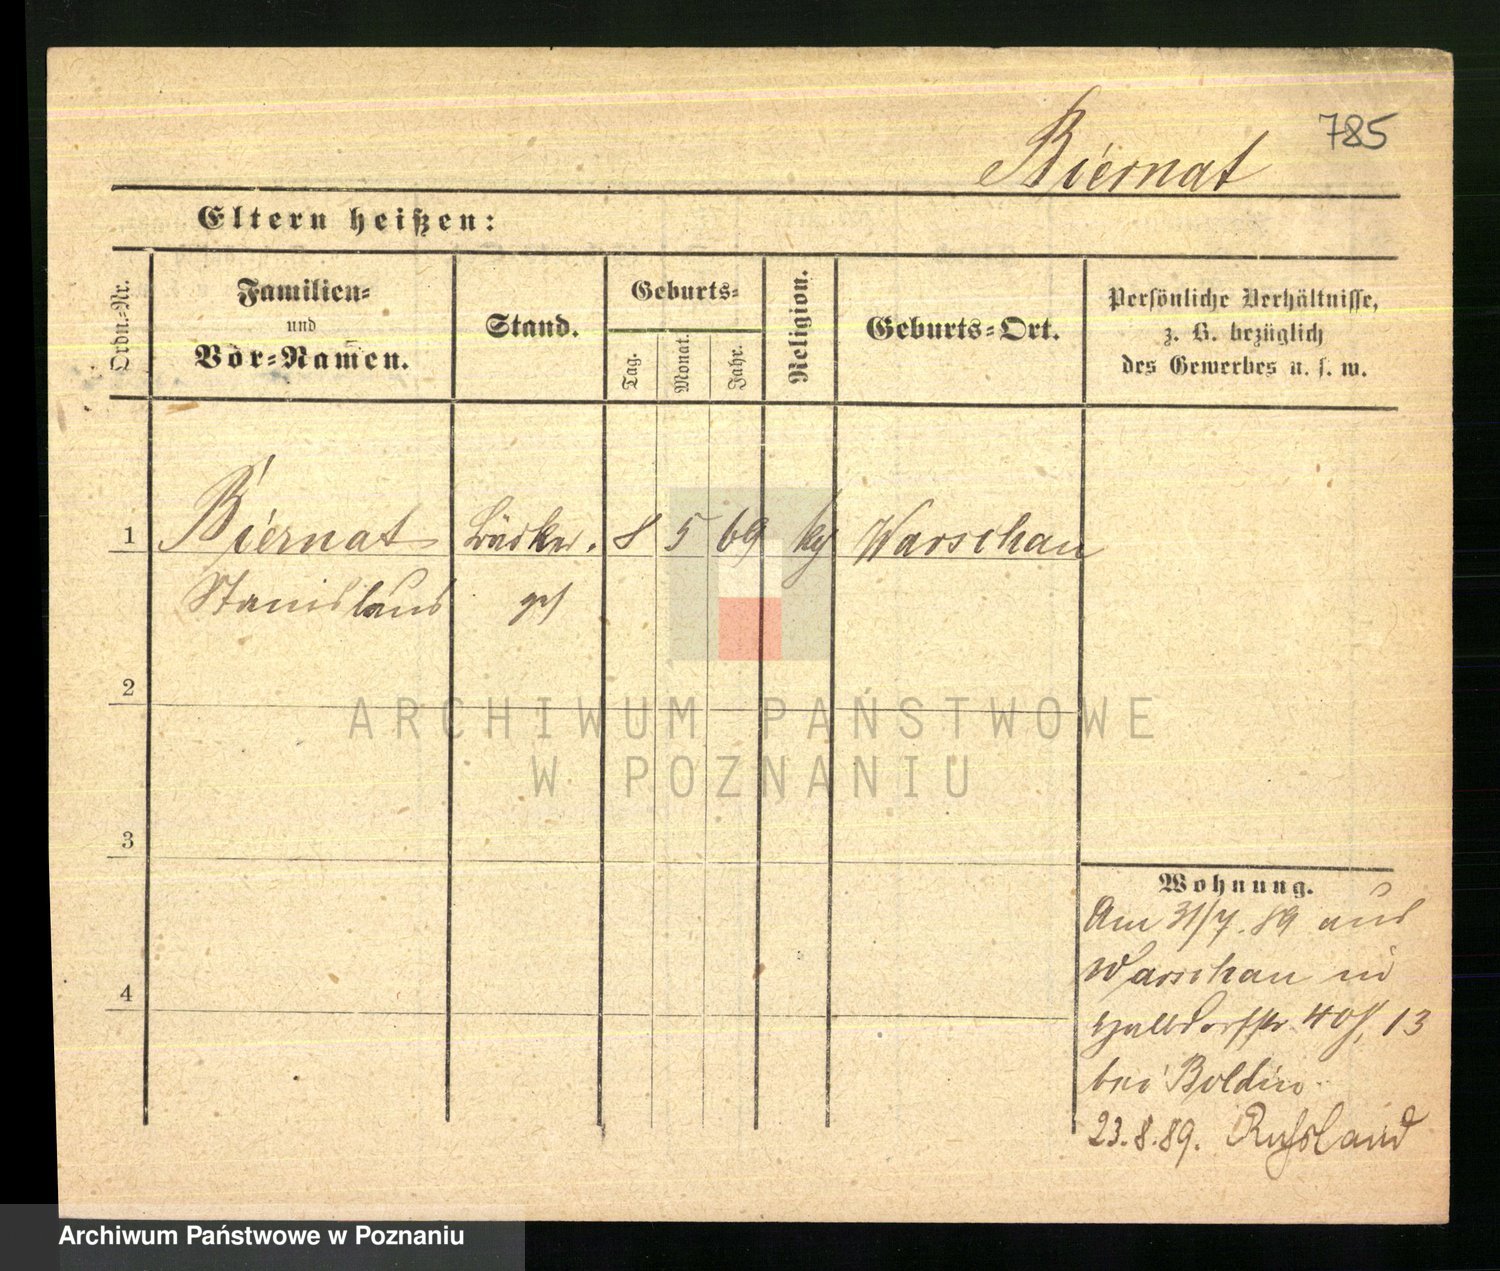 785
Biernat
Eltern heißen:
Ordn.-Nr.
Familien-
und
Vor-Namen.
Stand.
Geburts-
Tag.
Monat.
Jahr.
Religion.
Geburts-Ort.
Persönliche Verhältnisse,
z. B. bezüglich
des Gewerbes u. s. w.
1
Biernat
Bäcker.
8
5
69
Warschau
Stanislaus
2
ARCHIWUM PAŃSTWOWE
W POZNANIU
3
4
Wohnung.
Am 31/7. 89 aus
Warschau in
Halbdorfstr. 13
bei
23. 8. 89. Russland
Archiwum Państwowe w Poznaniu